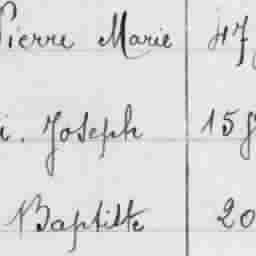 Pierre Marie 47
i. Joseph 158
Baptiste 20